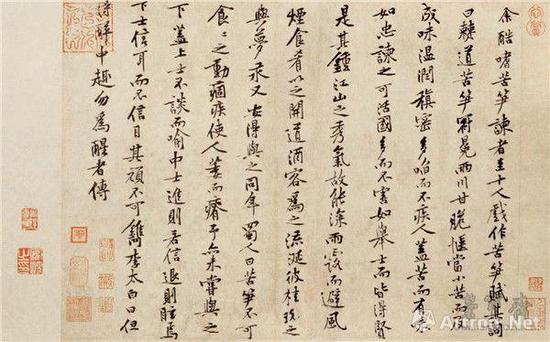 余酷嗜苦笋諫者至十人戲作苦笋賦其詞
曰僰道苦笋冠冕兩川甘脆愜當小苦而反
成味溫潤縝密多啗而不疾人蓋苦而有味
如忠諫之可活國多而不害如舉士而皆得賢
是其鍾江山之秀氣故能深雨露而避風
煙食肴以之開道酒客為之流涎彼桂玫之
與夢汞又安得與之同年蜀人曰苦笋不可
食〻之動痼疾使人萎而瘠予亦未嘗與之
下蓋上士不談而喻中士進則若信退則眩焉
下士信耳而不信目其頑不可鐫李太白曰但
得醉中趣勿為醒者傳
Artron.Net